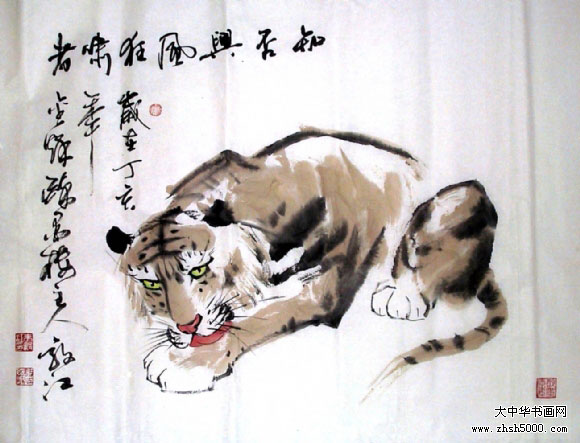 知否興風狂嘯者
歲在丁亥
年
金陵墨樓主人
江
大中华书画网
www.zhsh5000.com